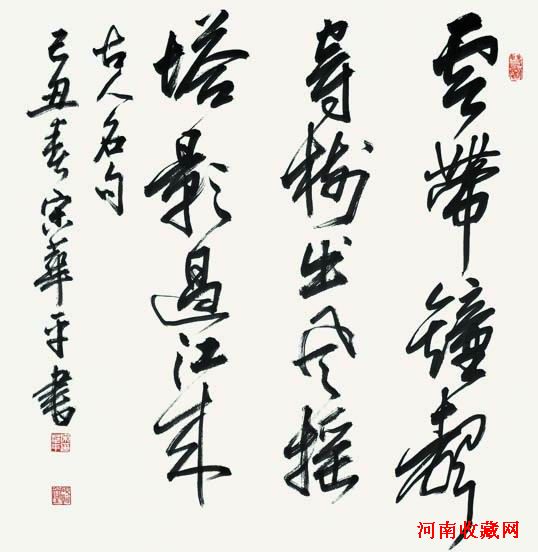 雲帶鐘聲
穿樹出風搖
塔影過江來
古人名句
己丑春宋華平書
河南收藏网